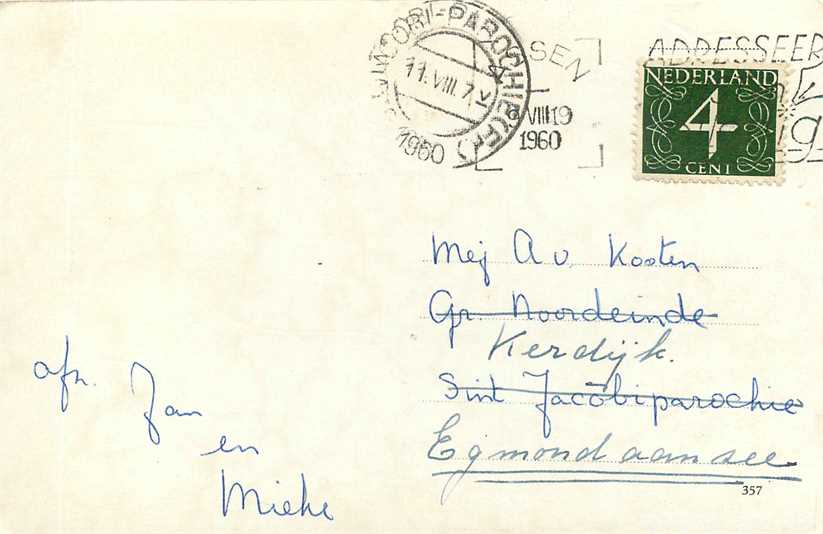 ST. JACOBI-PAROCHIE (FR)
11.VIII.7
1960
SEN
VIII19
1960
ADRESSEER
NEDERLAND
4
CENT
Mej A v. Kooten
Gr. Noordeinde
Kerdijk.
Sint Jacobiparochie
Egmond aan see
afz. Jan
en
Mieke
357